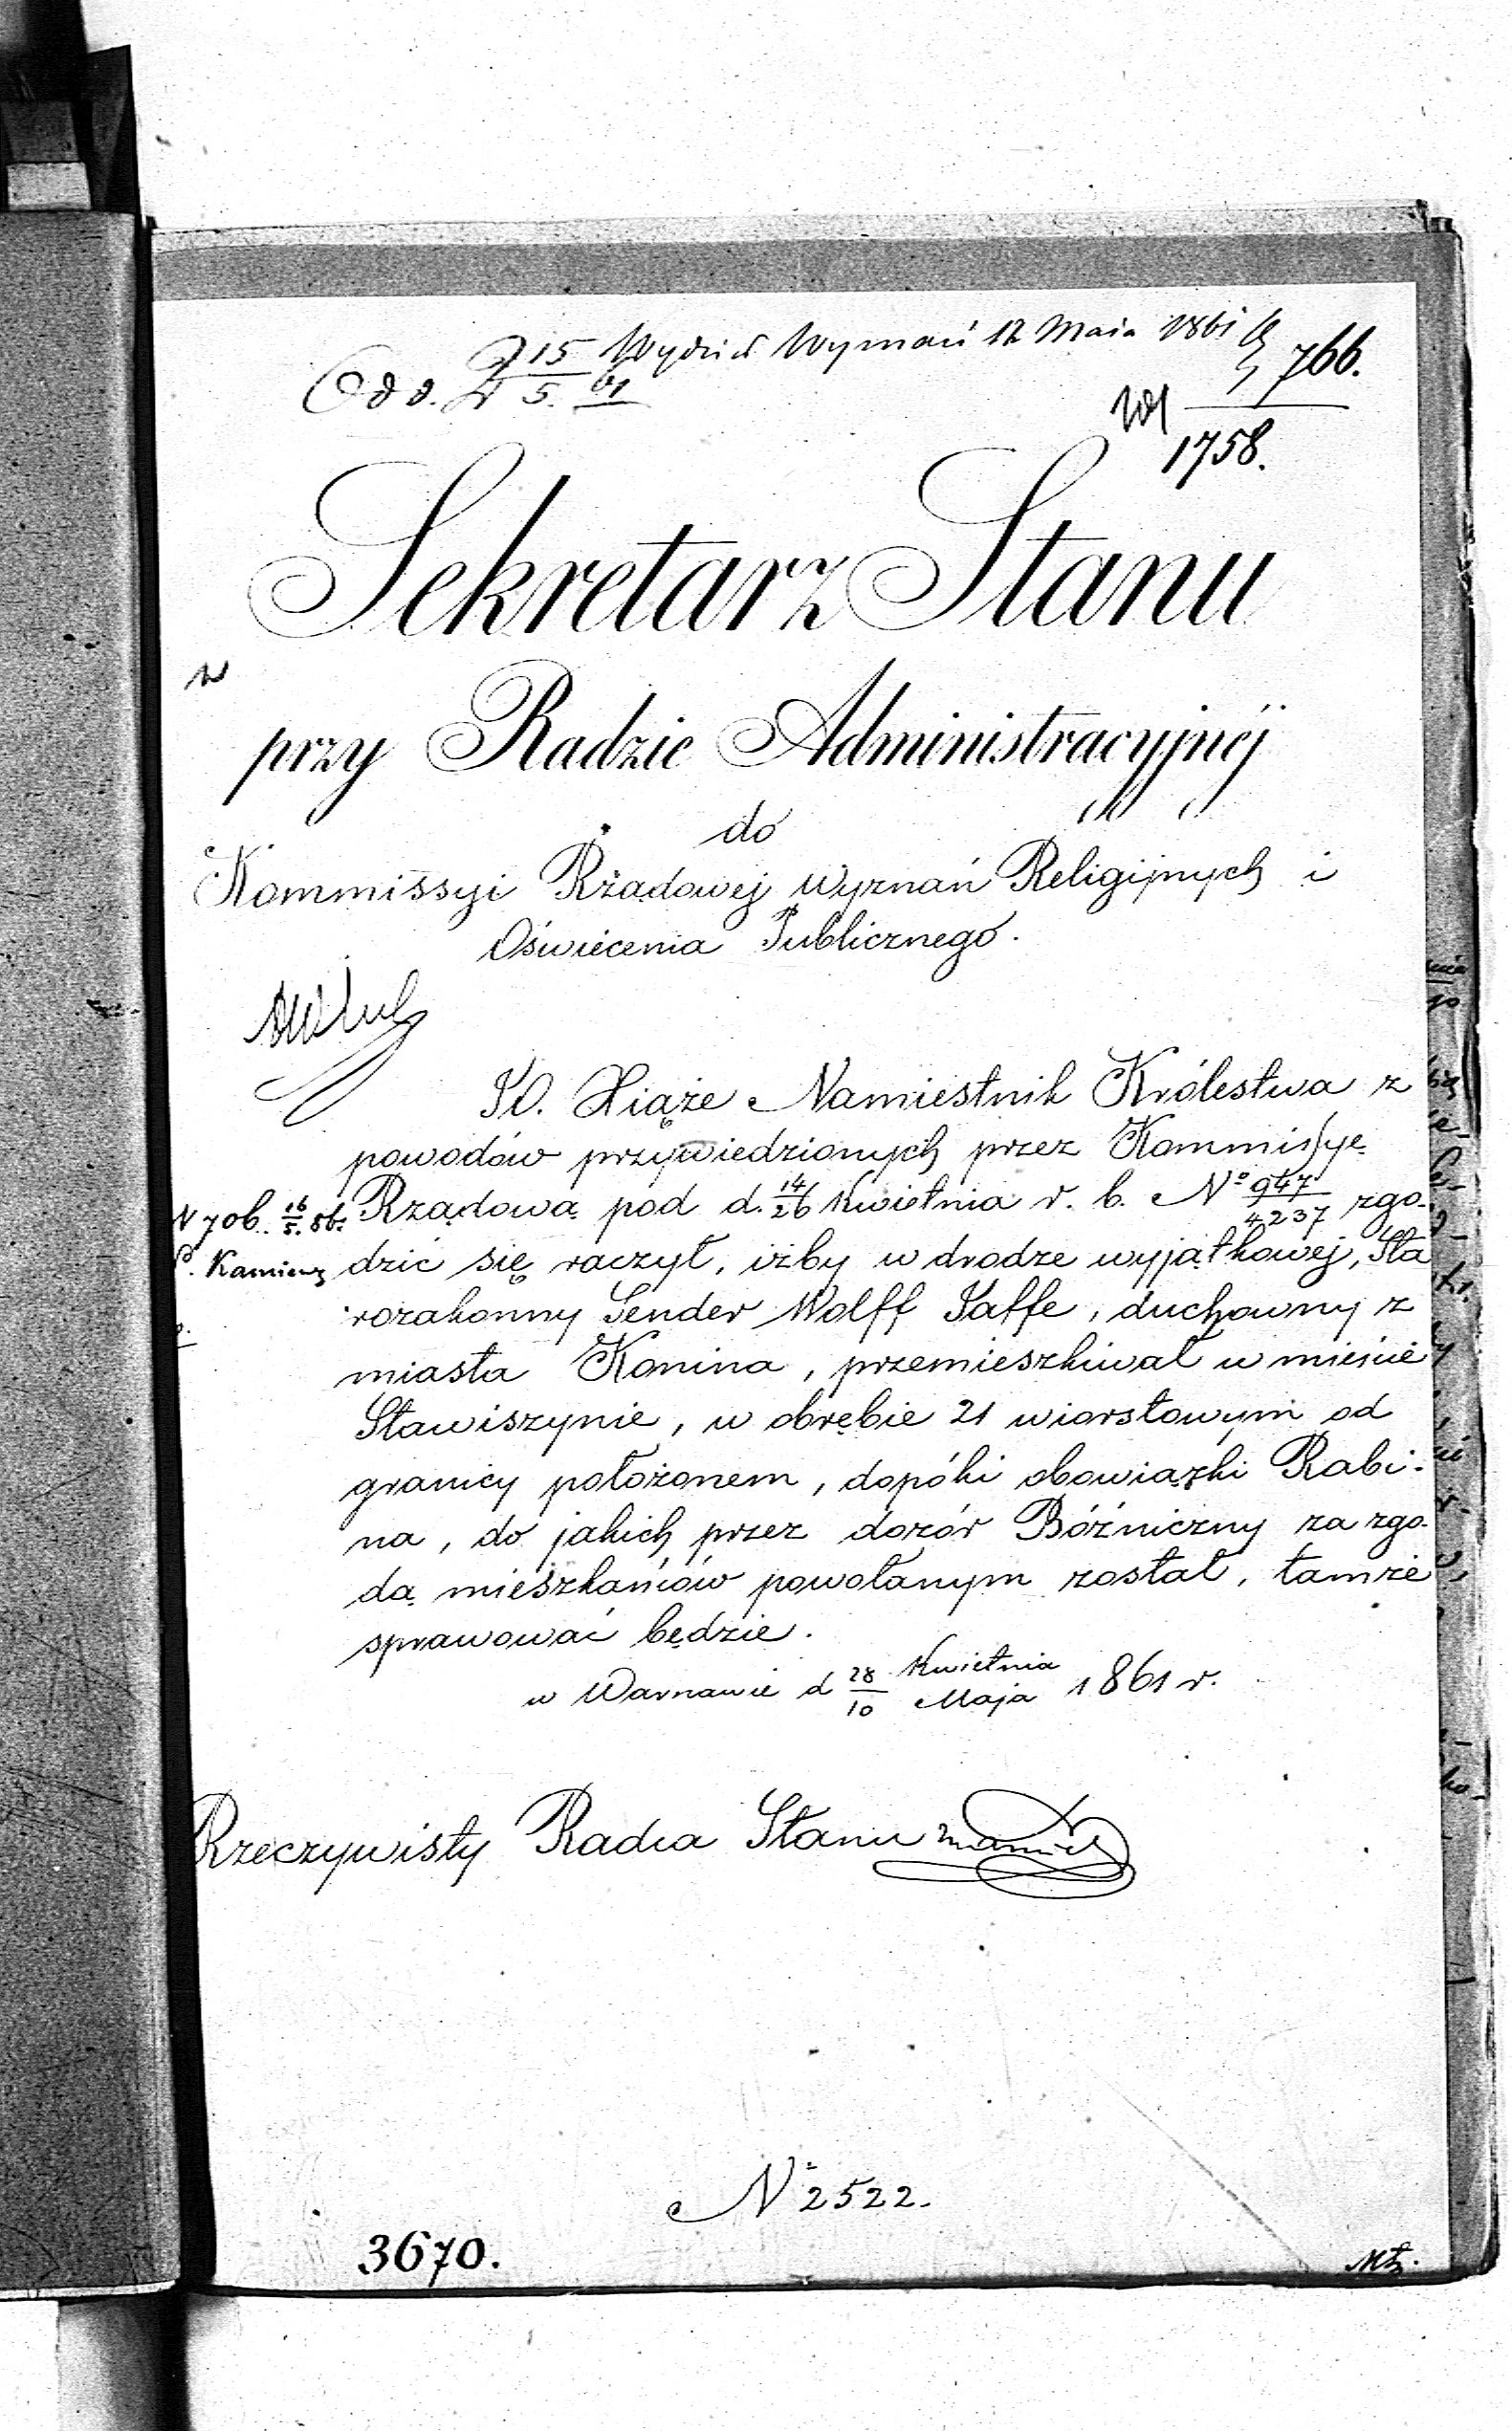 Wydział Wyznań 12 Maia 1861
766.
Odd. 15/5. 61
1758.
Sekretarz Stanu
przy Radzie Administracyjnéj
do
Kommissyi Rządowej Wyznań Religijnych i
Oświecenia Publicznego.
JO. Xiąże Namiestnik Królestwa z
powodów przywiedzionych przez Kommissyę
Rządową pod d. 14/26 Kwietnia r. b. No 947/4237 zgo-
dzić się raczył, iżby w drodze wyjątkowej, Sta
rozakonny Sender Wolff Jaffe, duchowny z
miasta Konina, przemieszkiwał w mieście
Stawiszynie, w obrębie 21 wiorstowym od
granicy położonem, dopóki obowiązki Rabi-
na, do jakich przez dozór Bóżniczny za zgo-
dą mieszkańców powołanym został, tamże
sprawować będzie.
w Warszawie d 28 Kwietnia / 10 Maja 1861 r.
N 706. 16/5. 61.
Kamienz
Rzeczywisty Radca Stanu
N 2522.
3670.